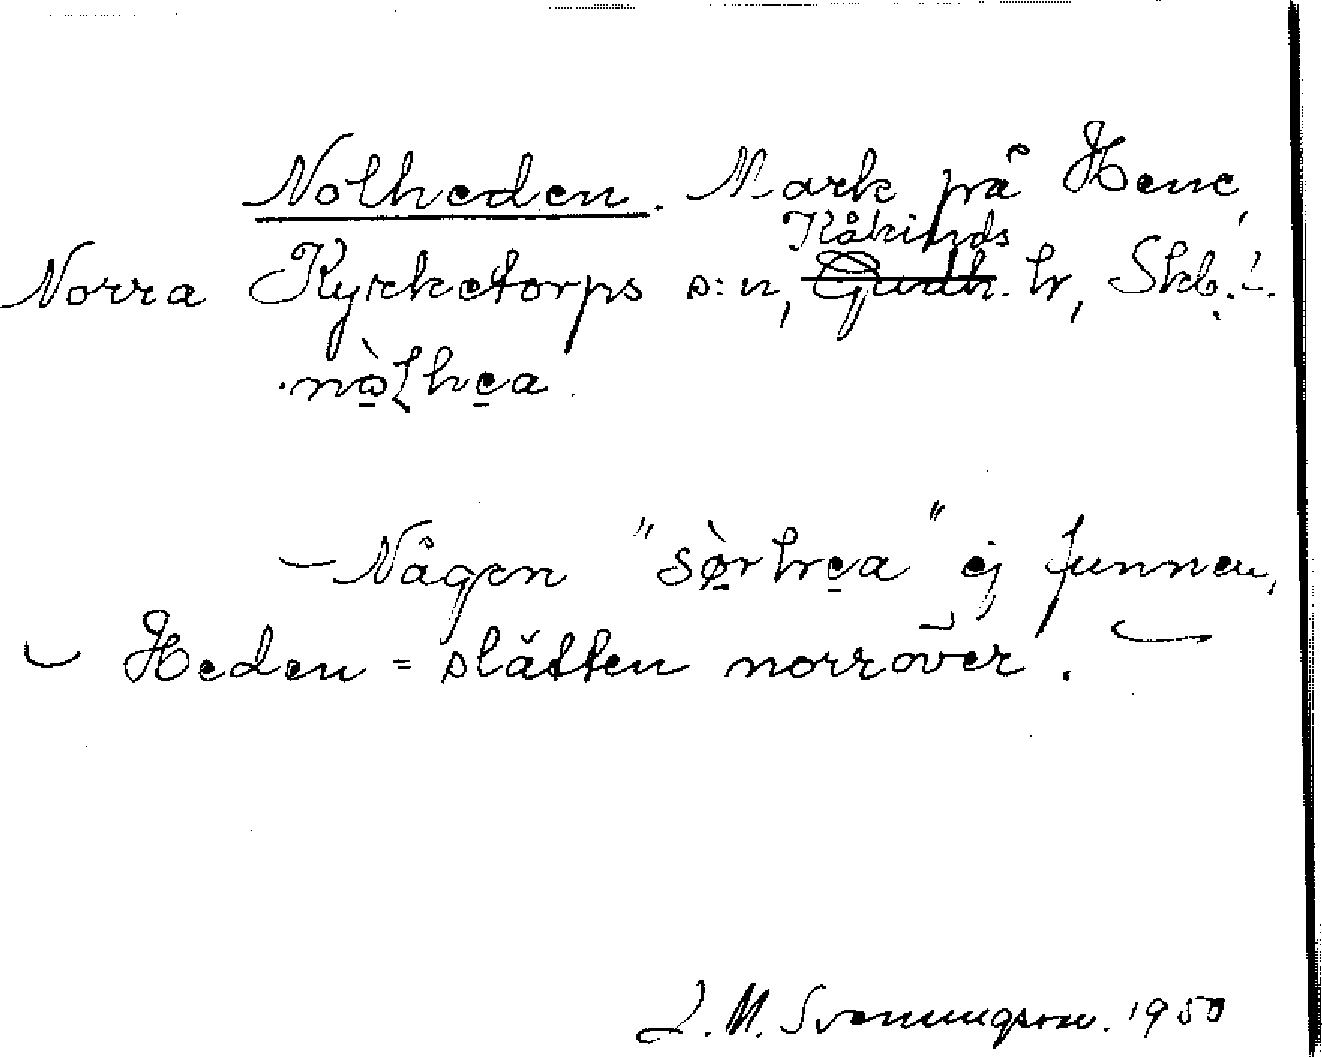 Nolheden. Mark på Hene,
Kåkinds
Norra Kyrketorps s:n, Gudh. hr, Skb. l.
nòlhea.
– Någen "sørhea" ej funnen,
Heden = slätten norröver.
J. M. Svenningson. 1950